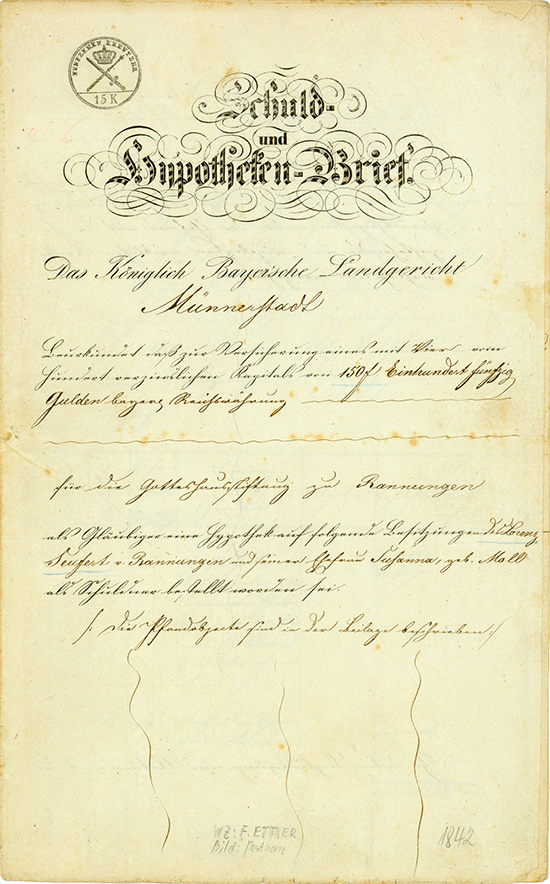 FÜNFZEHEN KREUZER
15 K
Schuld-
und
Hypotheken-Brief.
Das Königlich Bayerische Landgericht
Münnerstadt
Beurkundet daß zur Versicherung eines mit Vier vom
Hundert verzinslichen Kapitals von 150f Einhundert fünfzig
Gulden bayer. Reichswährung
für die Gotteshausstiftung zu Rannungen
als Gläubiger eine Hypothek auf folgende Besitzungen des Lorenz
Seufert v. Rannungen und seiner Ehefrau Susanna, geb. Moll
als Schuldner bestellt worden sei.
/: Die Pfandobjecte sind in der Beilage beschrieben :/
WZ: F. ETTNER
Bild:
1842